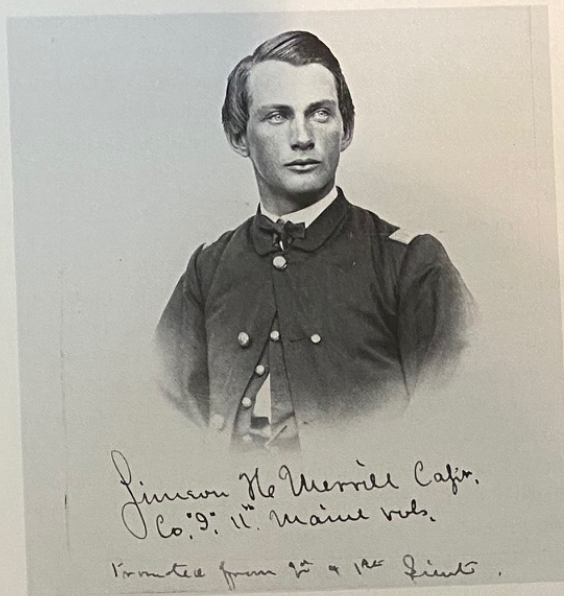 Simeon H Merrill Capt.
Co. "I". 11th. Maine vols.
Promoted from 2d & 1st Lieut.